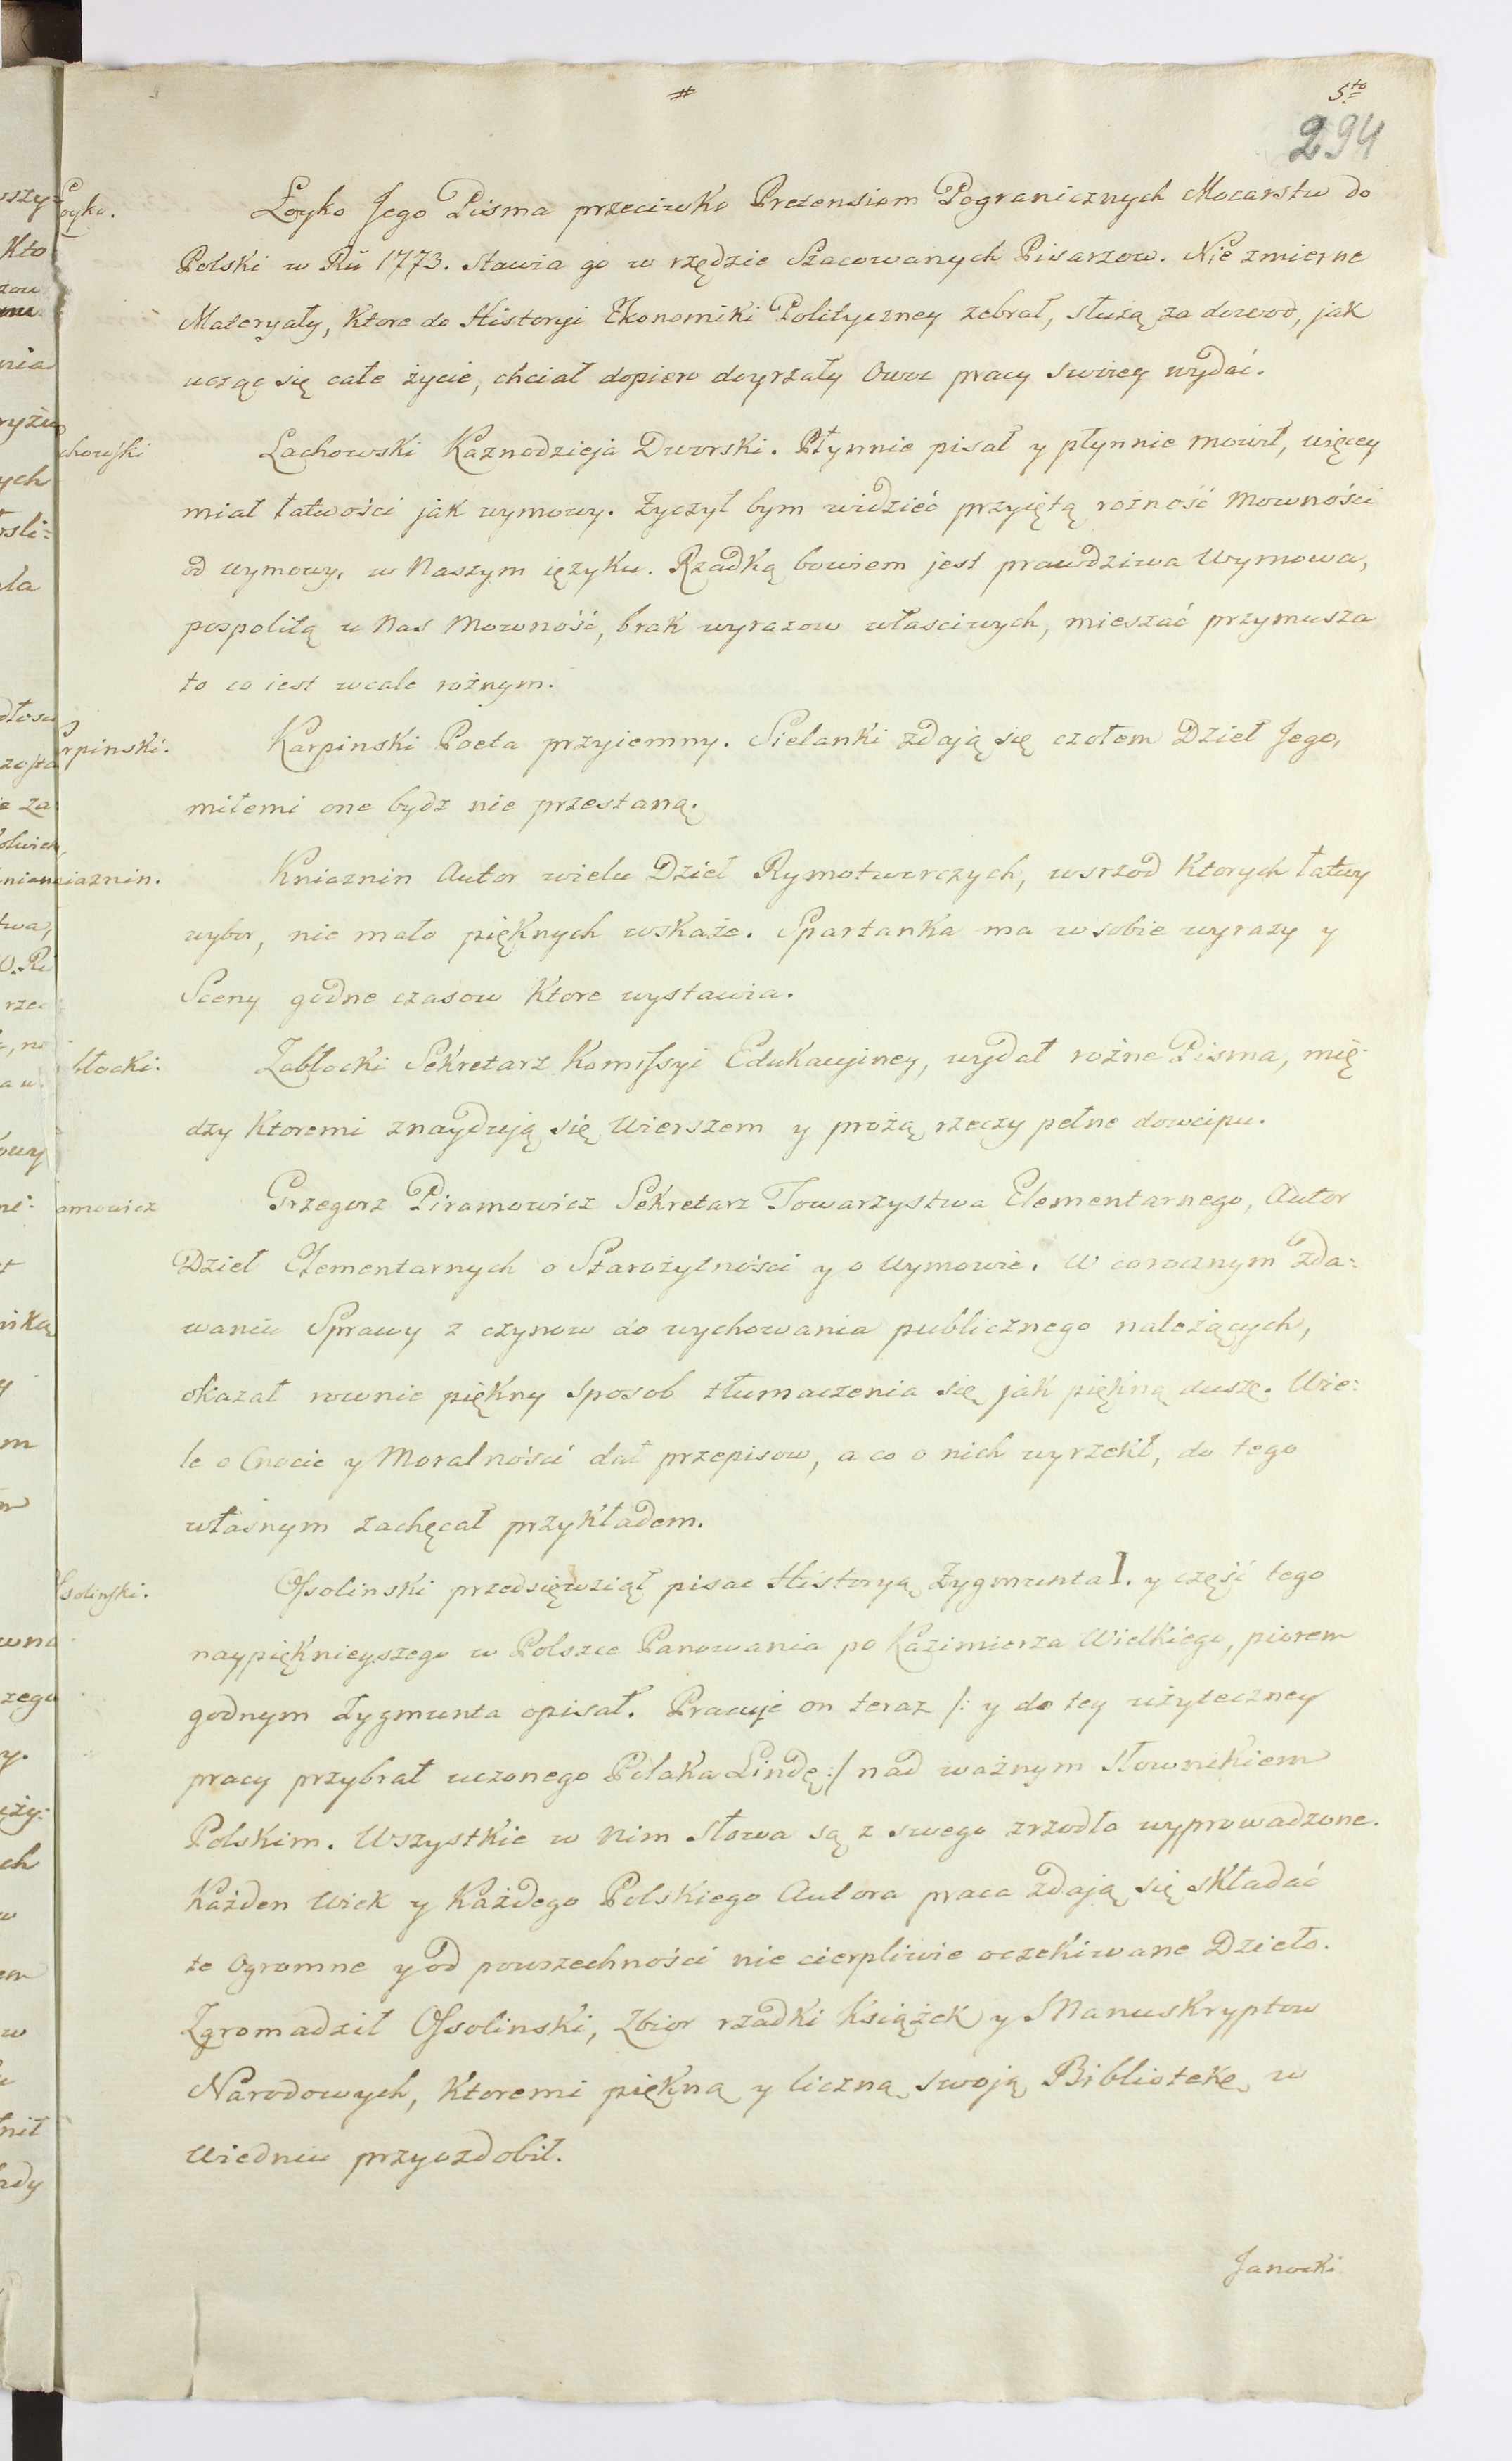 #
5to
294
oyko.
Łoyko Jego Pisma przeciwko Pretensiom Pogranicznych Mocarstw do
Polski w Ru 1773. stawia go w rzędzie Szacowanych Pisarzow. Nie zmierne
Materyały, Ktore do Historyi Ekonomiki Polityczney zebrał, służą za dowod, jak
ucząc się całe życie, chciał dopiero doyrzały Owoc pracy swoiey wydać.
chowski
Lachowski Kaznodzieja Dworski. Płynnie pisał y płynnie mowił, więcey
miał łatwości jak wymowy. Zyczył bym widzieć przyiętą rożność Mowności
od wymowy, w Naszym ięzyku. Rzadką bowiem jest prawdziwa Wymowa,
pospolitą u Nas Mowność, brak wyrazow właściwych, mieszać przymusza
to co iest wcale rożnym.
rpinski.
Karpinski Poeta przyiemny. Sielanki zdają się czołem Dzieł Jego,
miłemi one bydz nie przestaną.
iaznin.
Kniaznin Autor wielu Dzieł Rymotworczych, wsrzod Ktorych łatwy
wybor, nie mało pięknych wskaże. Spartanka ma w sobie wyrazy y
Sceny godne czasow Ktore wystawia.
błocki.
Zabłocki Sekretarz Komissyi Edukacyiney, wydał rożne Pisma, mię-
dzy Ktoremi znayduią się Wierszem y prozą rzeczy pełne dowcipu.
amowicz
Grzegorz Piramowicz Sekretarz Towarzystwa Elementarnego, Autor
Dzieł Elementarnych o Starożytności y o Wymowie. W corocznym zda=
waniu Sprawy z czynow do wychowania publicznego należących,
okazał rownie piękny sposob tłumaczenia się jak piękną duszę. Wie=
le o Cnocie y Moralności dał przepisow, a co o nich wyrzekł, do tego
własnym zachęcał przykładem.
solinski.
Ossolinski przedsięwziął pisac Historyą Zygmunta I. y część tego
naypięknieyszego w Polszce Panowania po Kazimierza Wielkiego, piorem
godnym Zygmunta opisał. Pracuje on teraz /: y do tey użyteczney
pracy przybrał uczonego Polaka Lindę :/ nad ważnym Słownikiem
Polskim. Wszystkie w Nim słowa są z swego zrzodła wyprowadzone.
Każden Wiek y Każdego Polskiego Autora praca zdają się składać
te Ogromne y od powszechności nie cierpliwie oczekiwane Dzieło.
Zgromadził Ossolinski, Zbior rzadki Książek y Manuskryptow
Narodowych, Ktoremi piękną y liczną swoją Bibliotekę w
Wiedniu przyozdobił.
Janocki